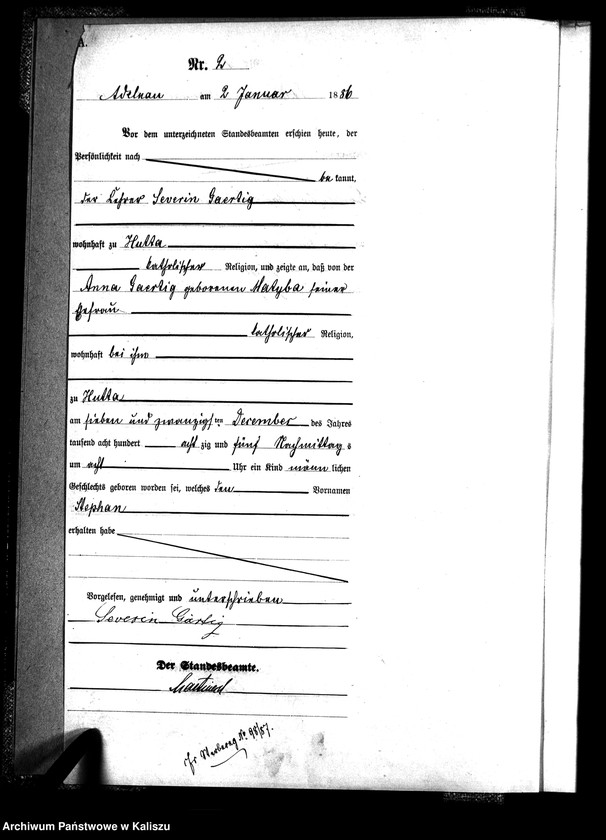 A.
Nr. 2
Adelnau am 2 Januar 1886
Vor dem unterzeichneten Standesbeamten erschien heute, der
Persönlichkeit nach
be kannt,
der Lehrer Severin Gaertig
wohnhaft zu Hutta
katholischer Religion, und zeigte an, daß von der
Anna Gaertig geborenen Matyba seiner
Ehefrau
katholischer Religion,
wohnhaft bei ihm
zu Hutta
am sieben und zwanzigsten December des Jahres
tausend acht hundert acht zig und fünf Nachmittags
um acht Uhr ein Kind männlichen
Geschlechts geboren worden sei, welches den Vornamen
Stephan
erhalten habe
Vorgelesen, genehmigt und unterschrieben
Severin Gärtig
Der Standesbeamte.
No 98/87.
Archiwum Państwowe w Kaliszu